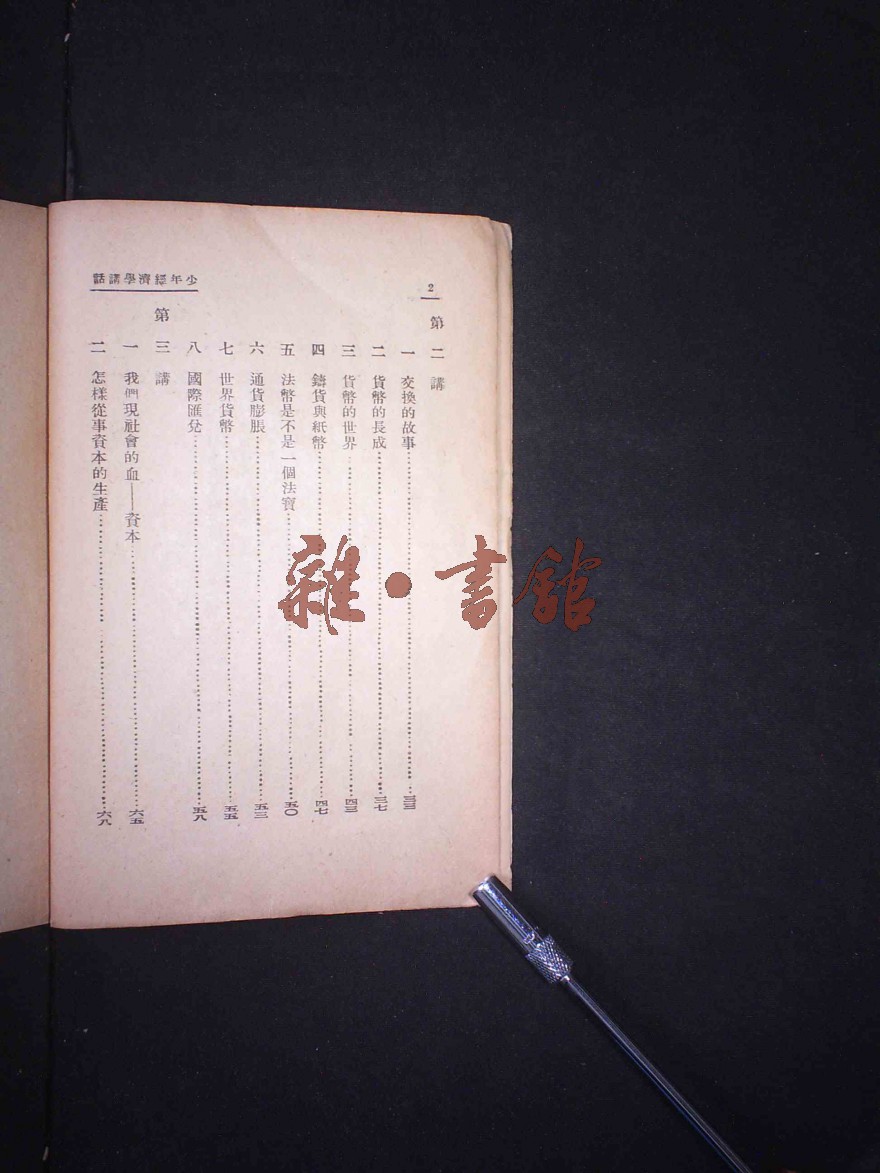 2
少年經濟學講話
第二講
一 交換的故事……三三
二 貨幣的長成……三七
三 貨幣的世界……四三
四 鑄貨與紙幣……四七
五 法幣是不是一個法寶……五〇
六 通貨膨脹……五三
七 世界貨幣……五五
八 國際匯兌……五八
第三講
一 我們現社會的血——資本……六五
二 怎樣從事資本的生產……六八
雜·書館